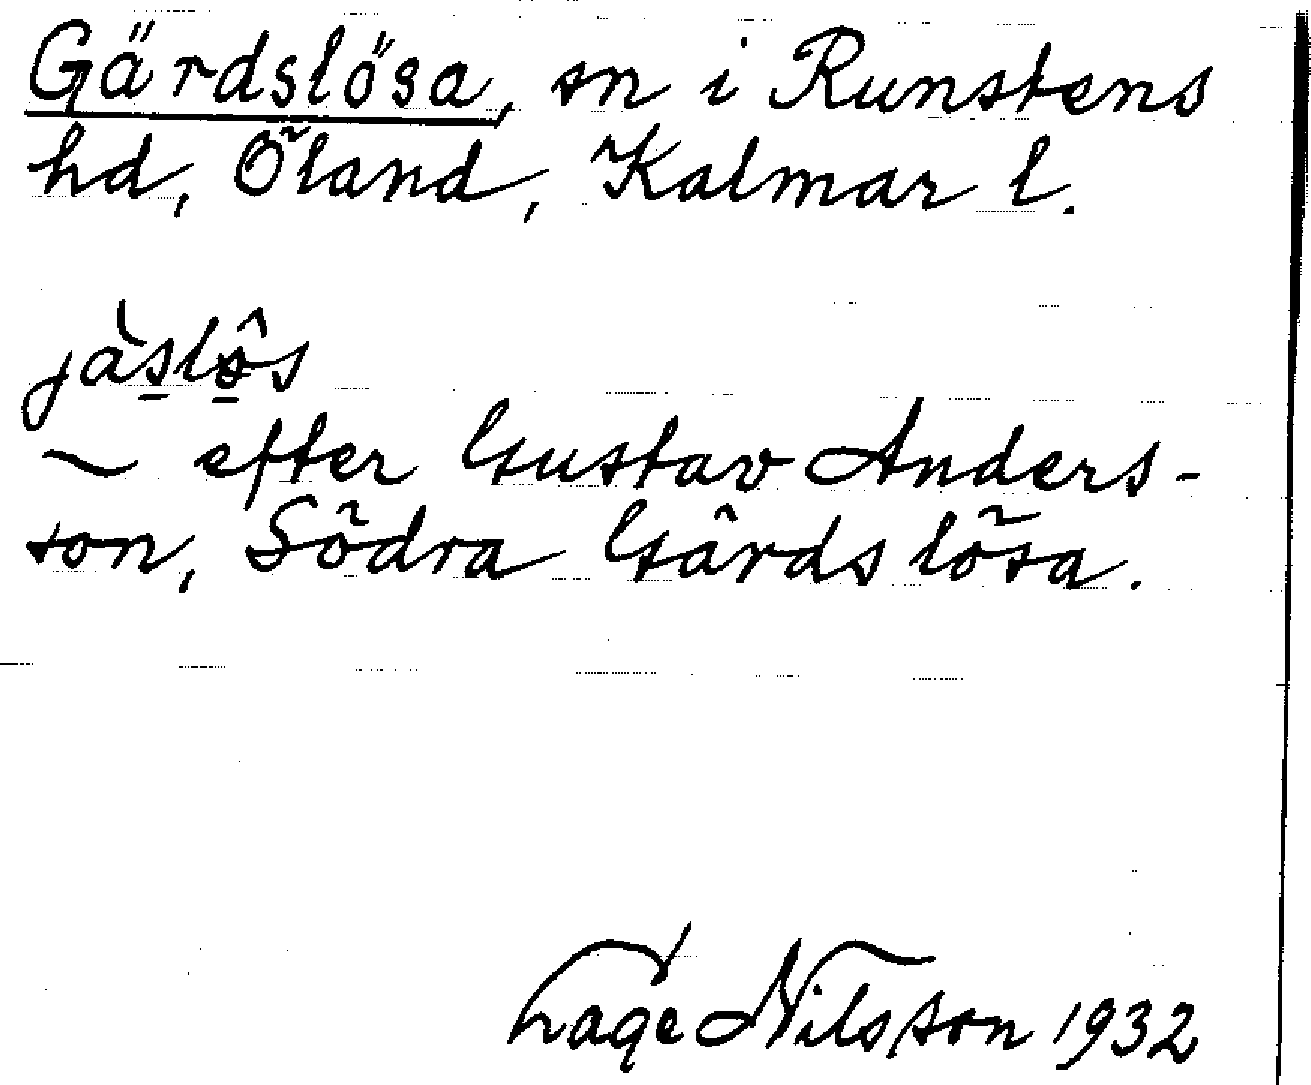 Gärdslösa, sn i Runstens
hd, Öland, Kalmar l.
jàs̲lö̲̂s
~ efter Gustav Anders-
son, Södra Gärdslösa.
Tage Nilsson 1932